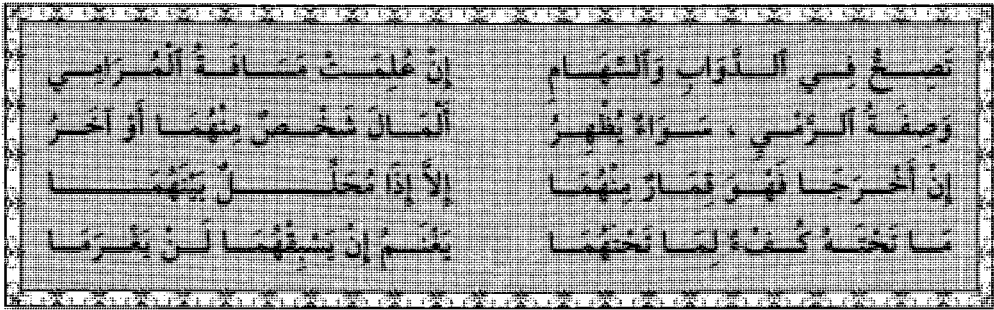 تَصِحُّ فِي ٱلدَّوَابِ وَٱلسِّهَامِ إِنْ عُلِمَتْ مَسَافَةُ ٱلْمُرَامِي
وَصِفَةُ ٱلرَّمْيِ ، سَوَاءٌ يُظْهِرُ ٱلْمَالَ شَخْصٌ مِنْهُمَا أَوْ آخَرُ
إِنْ أَخْرَجَا فَهْوَ قِمَارٌ مِنْهُمَا إِلاَّ إِذَا مُحَلِّلٌ بَيْنَهُمَا
مَا تَحْتَهُ كُفْءٌ لِمَا تَحْتَهُمَا يَغْنَمُ إِنْ يَسْبِقْهُمَا لَنْ يَغْرَمَا